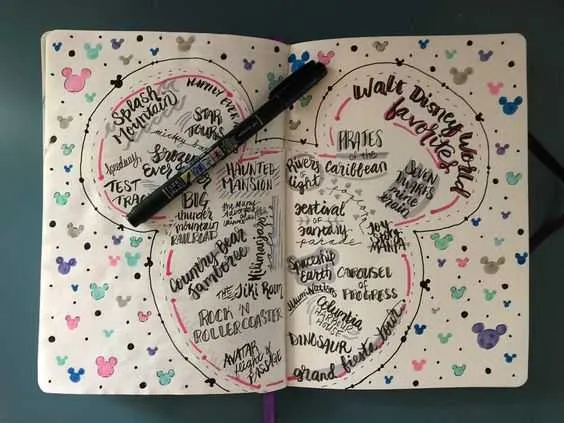 Splash
Mountain
HAPPILY EVER
STAR
TOURS
mickey
Speedway
Frozen
Ever
TEST
TRAC
BIG
thunder
mountain
RAILROAD
HAUNTED
MANSION
Kilimanjaro
Country Bear
Jamboree
THE Tiki Room
ROCK 'N'
ROLLERCOASTER
AVATAR
flight of
PASSAGE
Walt Disney World
favorites
PIRATES
of the
Caribbean
Rivers
of
Light
SEVEN
DWARFS
mine
train
festival
OF
fantasy
parade
Spaceship
Earth
CAROUSEL
OF
PROGRESS
Illuminations
Columbia
HARBOUR
HOUSE
DINOSAUR
grand fiesta tour